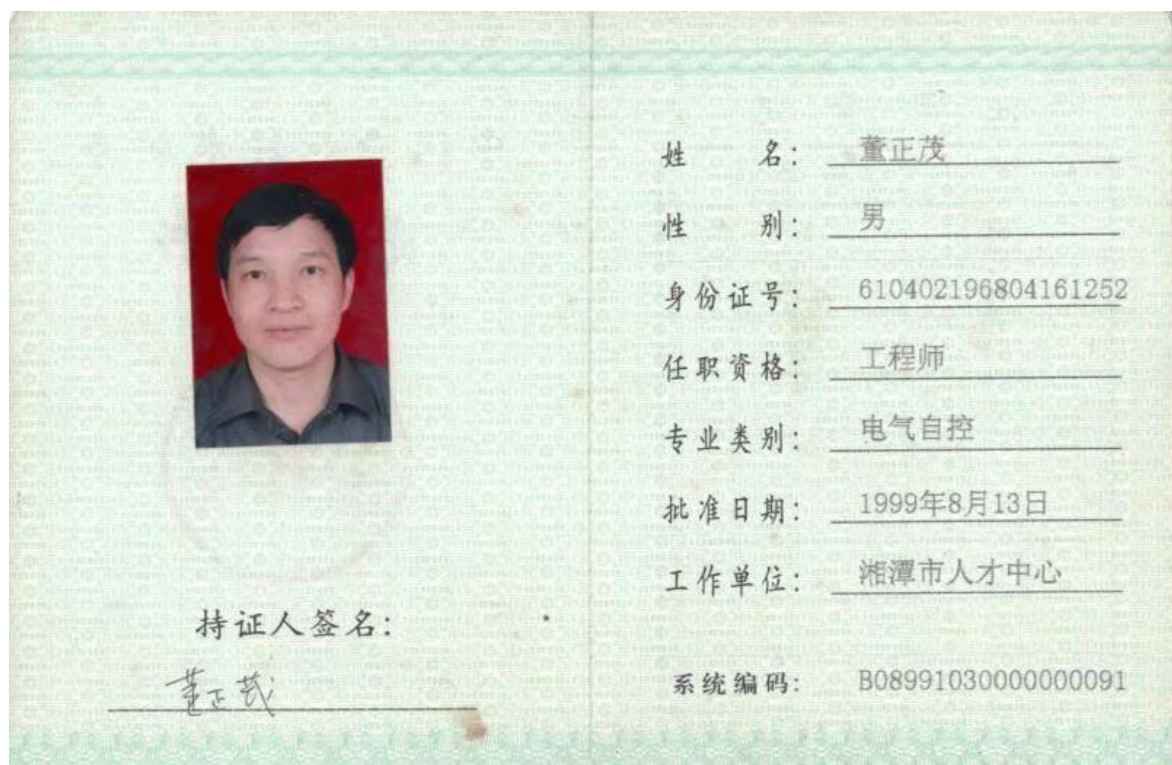 姓 名： 董正茂
性 别： 男
身份证号： 610402196804161252
任职资格： 工程师
专业类别： 电气自控
批准日期： 1999年8月13日
工作单位： 湘潭市人才中心
持证人签名：
董正茂
系统编码： B08991030000000091